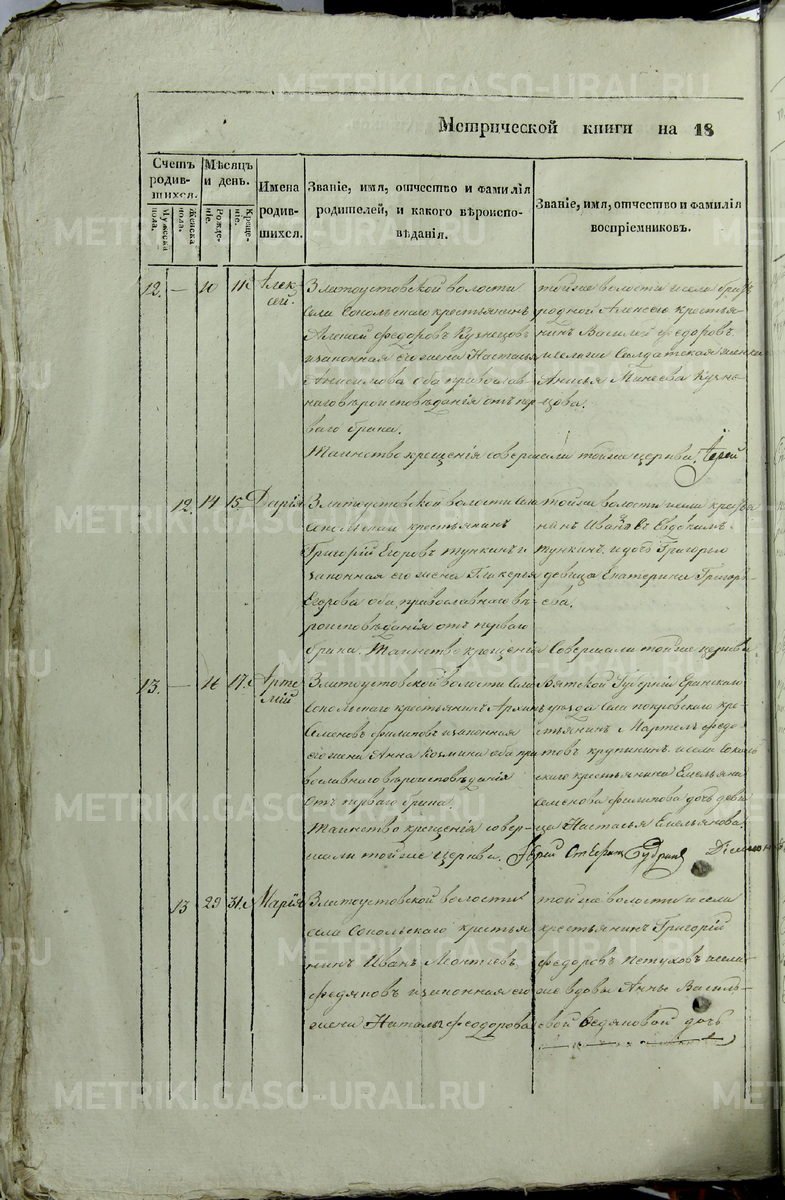 METRIKI.GASO-URAL.RU
Метрической книги на 18
Счетъ родив-шихся.
Мужеска пола.
Женска пола.
Мѣсяцъ и день.
Рожде-ніе.
Креще-ніе.
Имена родив-шихся.
Званіе, имя, отчество и фамилія родителей, и какого вѣроиспо-вѣданія.
Званіе, имя, отчество и фамилія воспріемниковъ.
12. — 10 11
Алек-
сей.
Златоустовской волости
села Сокольскаго крестьянинъ
Алексей Федоровъ Кузнецовъ
и законная его жена Настасья
Анисимова оба православ-
наго вѣроисповѣданія отъ пер
ваго брака.
Таинство крещенія совершали тойже церкви Іерей
тойже волости и села
родной Алексею крестья-
нинъ Василей Федоровъ
Солдатская женка
Анисья Минеева Кузне-
цова.
12. 14 15.
Дарія
Златоустовской волости села
Сокольскаго крестьянинъ
Григорій Егоровъ тункинъ и
законная его жена Гликерья
Егорова оба православнаго вѣ-
роисповѣданія отъ перваго
брака. Таинство крещенія Совершали тойже церкви
тойже волости и села крестья
нинъ Ивановъ Евдокимъ
тункинъ и дочь Григорья
девица Екатерина Григорь-
ева.
13. — 16 17.
Арте
мій
Златоустовской волости села
Сокольскаго крестьянинъ Архипъ
Семеновъ Филиповъ и законная
его жена Анна Козмина оба пра
вославнаго вѣроисповѣданія
отъ перваго брака.
Таинство крещенія совер-
шали тойже церкви. Іерей Стефанъ
Вятской Губерніи
уезда села покровскаго кре-
стьянинъ
и села Соколь
скаго крестьянина Емельяна
семенова филипова дочь деви
ца Настасья Емельянова.
13 29 31.
Марія
Златоустовской волости
села Сокольскаго крестья
нинъ Иванъ Леонтьевъ
Федяковъ и законная его
жена Наталья Феодорова
тойже волости и села
крестьянинъ Григорій
Федоровъ Петуховъ и села
же вдовы Анны Василь-
евой Федяковой дочь